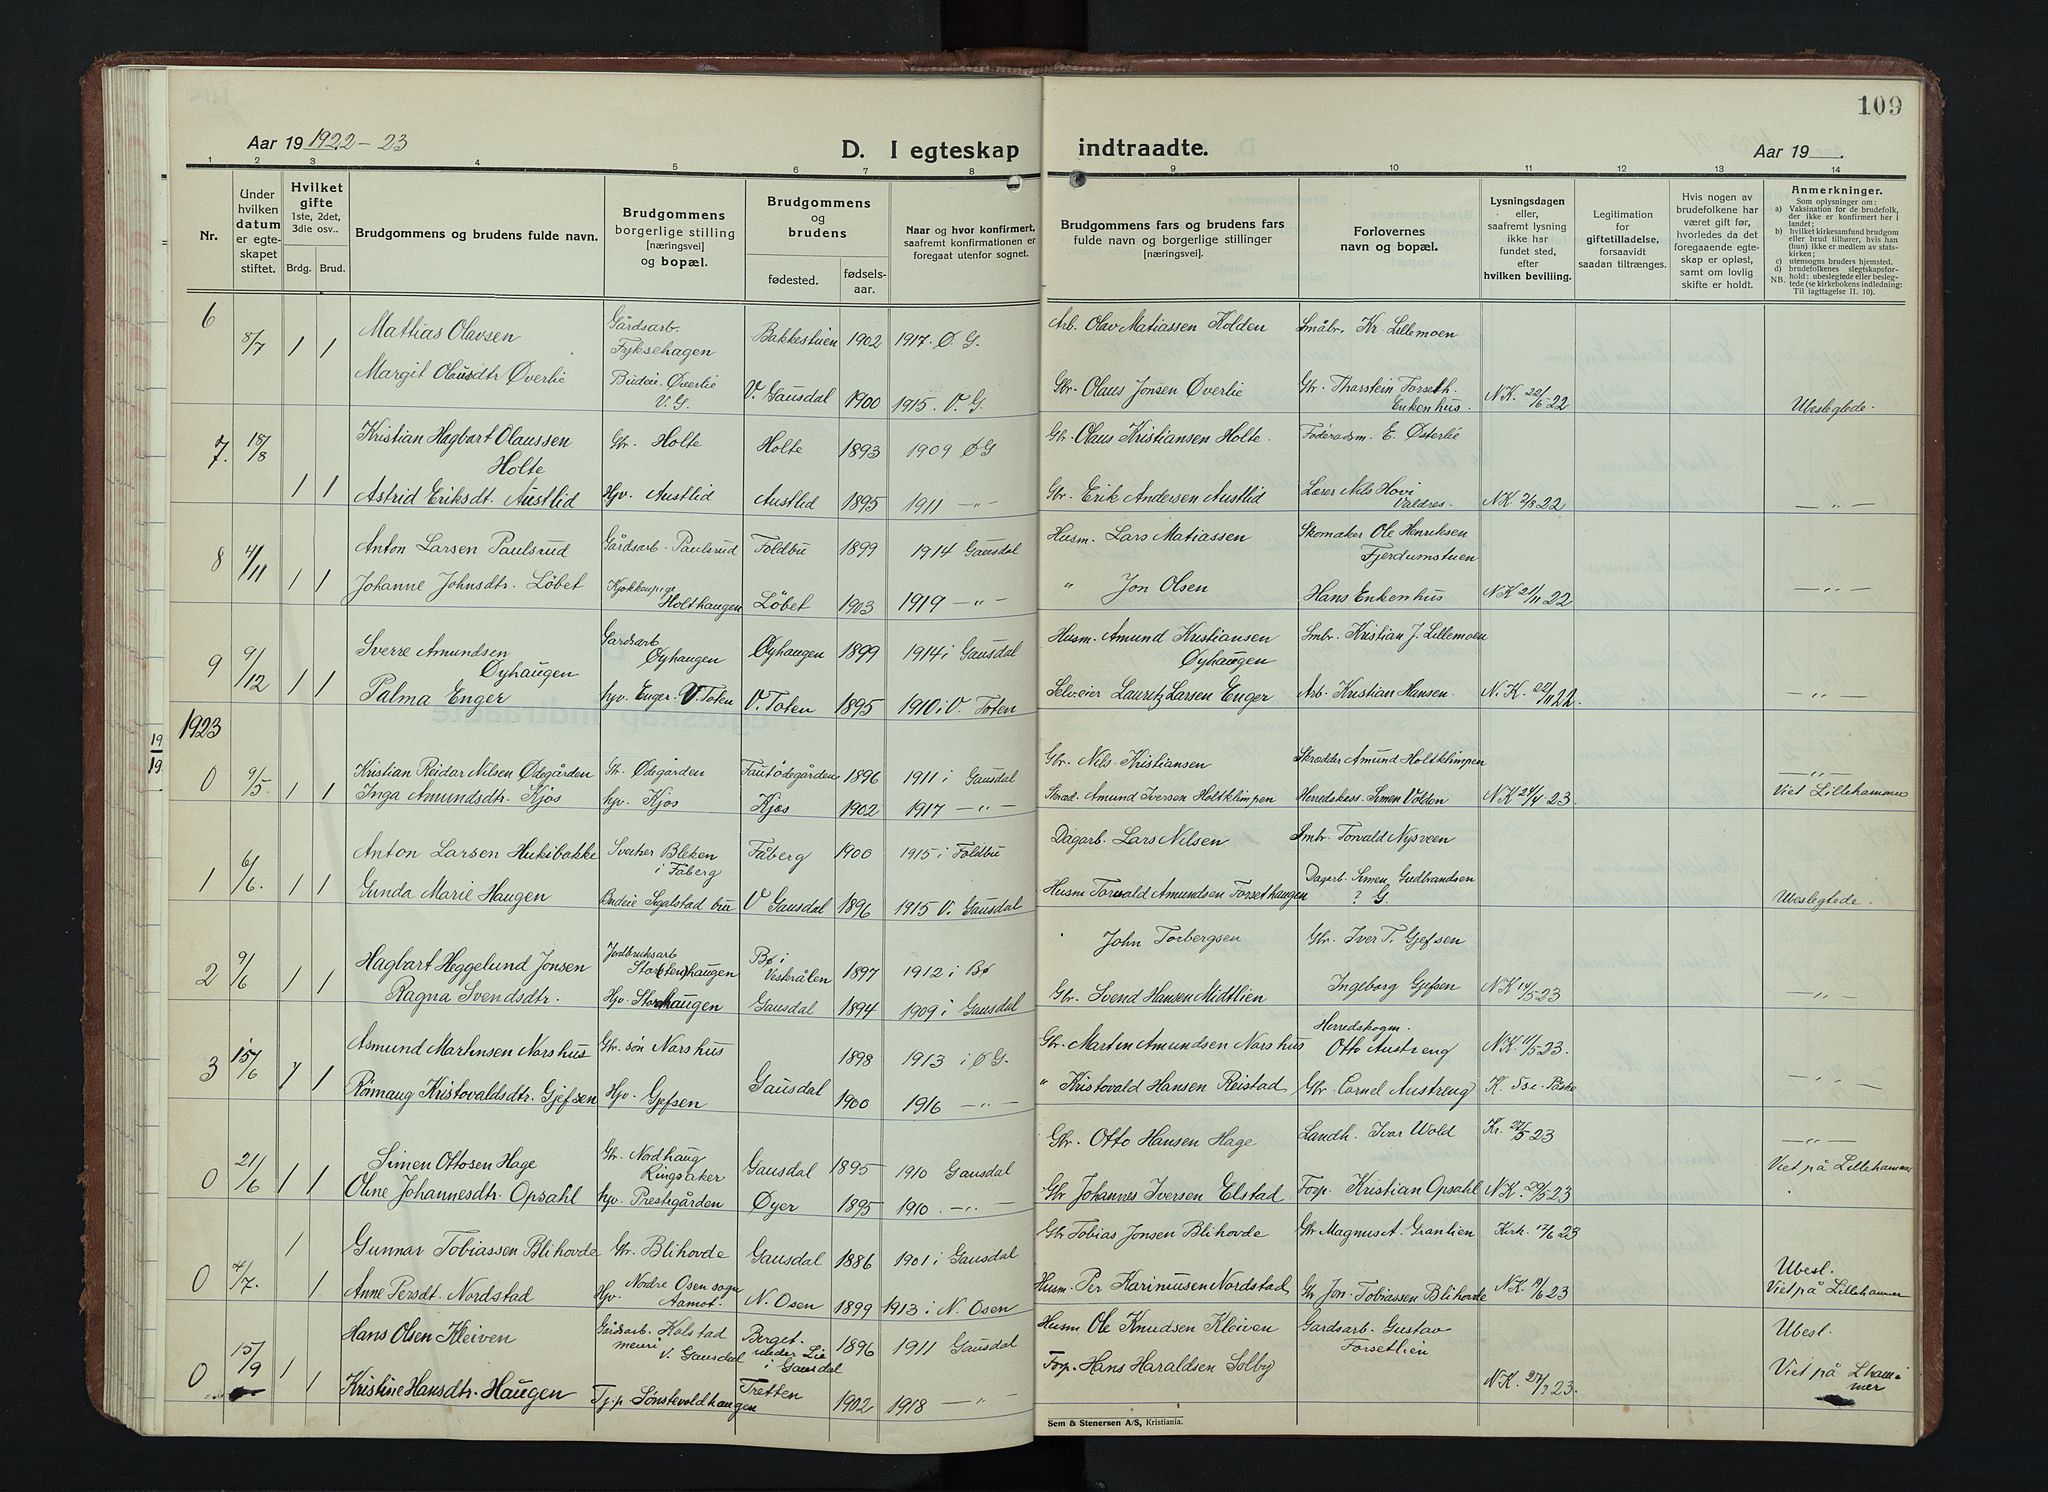 109
Aar 19 1922-23
D. I egteskap
indtraadte.
Aar 19
1 2 3 4 5 6 7 8 9 10 11 12 13 14
Nr.
Under hvilken datum er egteskapet stiftet.
Hvilket gifte
1ste, 2det, 3die osv..
Brdg. Brud.
Brudgommens og brudens fulde navn.
Brudgommens borgerlige stilling [næringsvei] og bopæl.
Brudgommens og brudens
fødested. fødselsaar.
Naar og hvor konfirmert, saafremt konfirmationen er foregaat utenfor sognet.
Brudgommens fars og brudens fars fulde navn og borgerlige stillinger [næringsvei].
Forlovernes navn og bopæl.
Lysningsdagen eller, saafremt lysning ikke har fundet sted, efter hvilken bevilling.
Legitimation for giftetilladelse, forsaavidt saadan tiltrænges.
Hvis nogen av brudefolkene har været gift før, hvorledes da det foregaaende egteskap er opløst, samt om lovlig skifte er holdt.
Anmerkninger.
Som oplysninger om:
a) Vaksination for de brudefolk, der ikke er konfirmert her i landet;
b) hvilket kirkesamfund brudgom eller brud tilhører, hvis han (hun) ikke er medlem av statskirken;
c) utensogns bruders hjemsted.
d) brudefolkenes slegtskapsforhold: ubeslegtede eller beslegtede (se kirkebokens indledning: Til iagttagelse II. 10).
NB.
6 8/7 1 1 Mattias Olavsen Gårdsarb. Fyksehagen Bakkestuen 1902 1917. Ø. G. Arb. Olav Matiassen Kolden Småbr. Kr. Lillemoen
Margit Olausdtr Øverlie Budeie, Øverlie V. G. V. Gausdal 1900 1915. V. G. Gbr. Olaus Jonsen Øverlie Gbr. Thorstein Forseth. Enkenhus. N.K. 22/6 22 Ubeslegtede.
7. 18/8 Kristian Hagbart Olaussen Holte Gbr. Holte Holte 1893 1909 ØG Gbr. Olaus Kristiansen Holte. Föderadsm. E. Østerlie
1 1 Astrid Eriksdt. Austlid Hjv. Austlid Austlid 1895 1911 —"— Gbr. Erik Andersen Austlid Lærer Nils Hovi Valdres. N.K. 2/8 22 —"—
8 4/11 Anton Larsen Paulsrud Gårdsarb. Paulsrud Foldbu 1899 1914 Gausdal Husm. Lars Matiassen Skomaker Ole Henriksen Fjerdumstuen
1 1 Johanne Johnsdtr. Løbet Kjøkkenpige Holthaugen Løbet 1903 1919 —"— " Jon Olsen Hans Enkenhus N.K. 21/11 22 —"—
9 9/12 Sverre Amundsen Øyhaugen Gardsarb Øyhaugen Øyhaugen 1899 1914 i Gausdal Husm. Amund Kristiansen Øyhaugen Smbr. Kristian J. Lillemoen
1 1 Palma Enger hjv. Enger. V. Toten V. Toten 1895 1910 i V. Toten Selveier Lauritz Larsen Enger Arb. Kristian Hansen. N.K. 22/11 22. —"—
1923
19/19
0 9/5. 1 1 Kristian Reidar Nilsen Ødegården Gbr. Ødegården Fautödegården 1896 1911 i Gausdal Gbr. Nils. Kristiansen Skrædder Amund Holtklimpen —"—
Inga Amundsdtr. Kjos hjv. Kjos Kjos 1902 1917 —"— Skræd. Amund Iversen Holtklimpen Herredskass. Simen Volden N.K. 24/4 23. Viet Lillehammer
1 6/6. 1 1 Anton Larsen Hukibakke Sveitser Bleken i Fåberg Fåberg 1900 1915 i Foldbu Dagarb. Lars Nilsen Smbr. Torvald Nysveen
Gunda Marie Haugen Budeie Segalstad bru V Gausdal 1896 1915 V. Gausdal Husm Torvald Amundsen Forsethaugen Dagarb. Simen Gudbrandsen ? G. Ubeslegtede.
2 9/6 1 1 Hagbart Heggelund Jonsen Jordbruksarb Stor(sten)haugen Bø i Vesterålen 1897 1912 i Bø John Torbergsen Gbr. Iver T. Gjefsen
Ragna Svendsdtr. Hjv. Storhaugen Gausdal 1894 1909 i Gausdal Gbr. Svend Hansen Midtlien Ingeborg Gjefsen N.K. 14/5 23 —"—
3 15/6 1 1 Asmund Martinsen Norshus Gbr. søn Norshus 1898 1913 i ØG. Gbr. Martin Amundsen Norshus Herredskogm. Otto Austreng N.K. 11/5 23.
Rønnaug Kristovaldsdtr. Gjefsen Hjv. Gjefsen Gausdal 1900 1916 —"— " Kristovald Hansen Reistad Gbr. Cornel Austreng K. 5 s e. Påske —"—
0 21/6 1 1 Simen Ottosen Hage Gbr. Nordhaug Ringsaker Gausdal 1895 1910 Gausdal Gbr. Otto Hansen Hage Landh. Ivar Wold Kr. 27/5 23 —"—
Oline Johannesdtr. Opsahl hjv. Prestegården Øyer 1895 1910. —"— Gbr Johannes Iversen Elstad Forp. Kristian Opsahl N.K. 29/5 23 Viet på Lillehammer
0 4/7. 1 Gunnar Tobiassen Blihovde Gbr. Blihovde Gausdal 1886 1901 i Gausdal Gbr Tobias Jonsen Blihovde Gbr Magnus A. Granlien Kirk. 17/6 23 Ubesl.
1 Anne Persdt. Nordstad Hjv. Nordre Osen sogn Aamot. N. Osen 1899 1913 i N. Osen Husm. Per Karinusen Nordstad Gbr Jon Tobiassen Blihovde N.K. 19/6 23 Viet på Lillehammer
0 15/9 1 Hans Olsen Kleiven Gårdsarb. Kolstad meieri V. Gausdal Berget under Lie i Gausdal 1896 1911 Gausdal Husm Ole Knudsen Kleiven Gardsarb. Gustav Forsetlien Ubesl.
1 Kristine Hansdtr. Haugen Tj.p. Sønstevoldhaugen Tretten 1902 1918 —"— Forp. Hans Haraldsen Solby N.K. 27/7 23. Viet på Lhammer
Sem & Stenersen A/S, Kristiania.